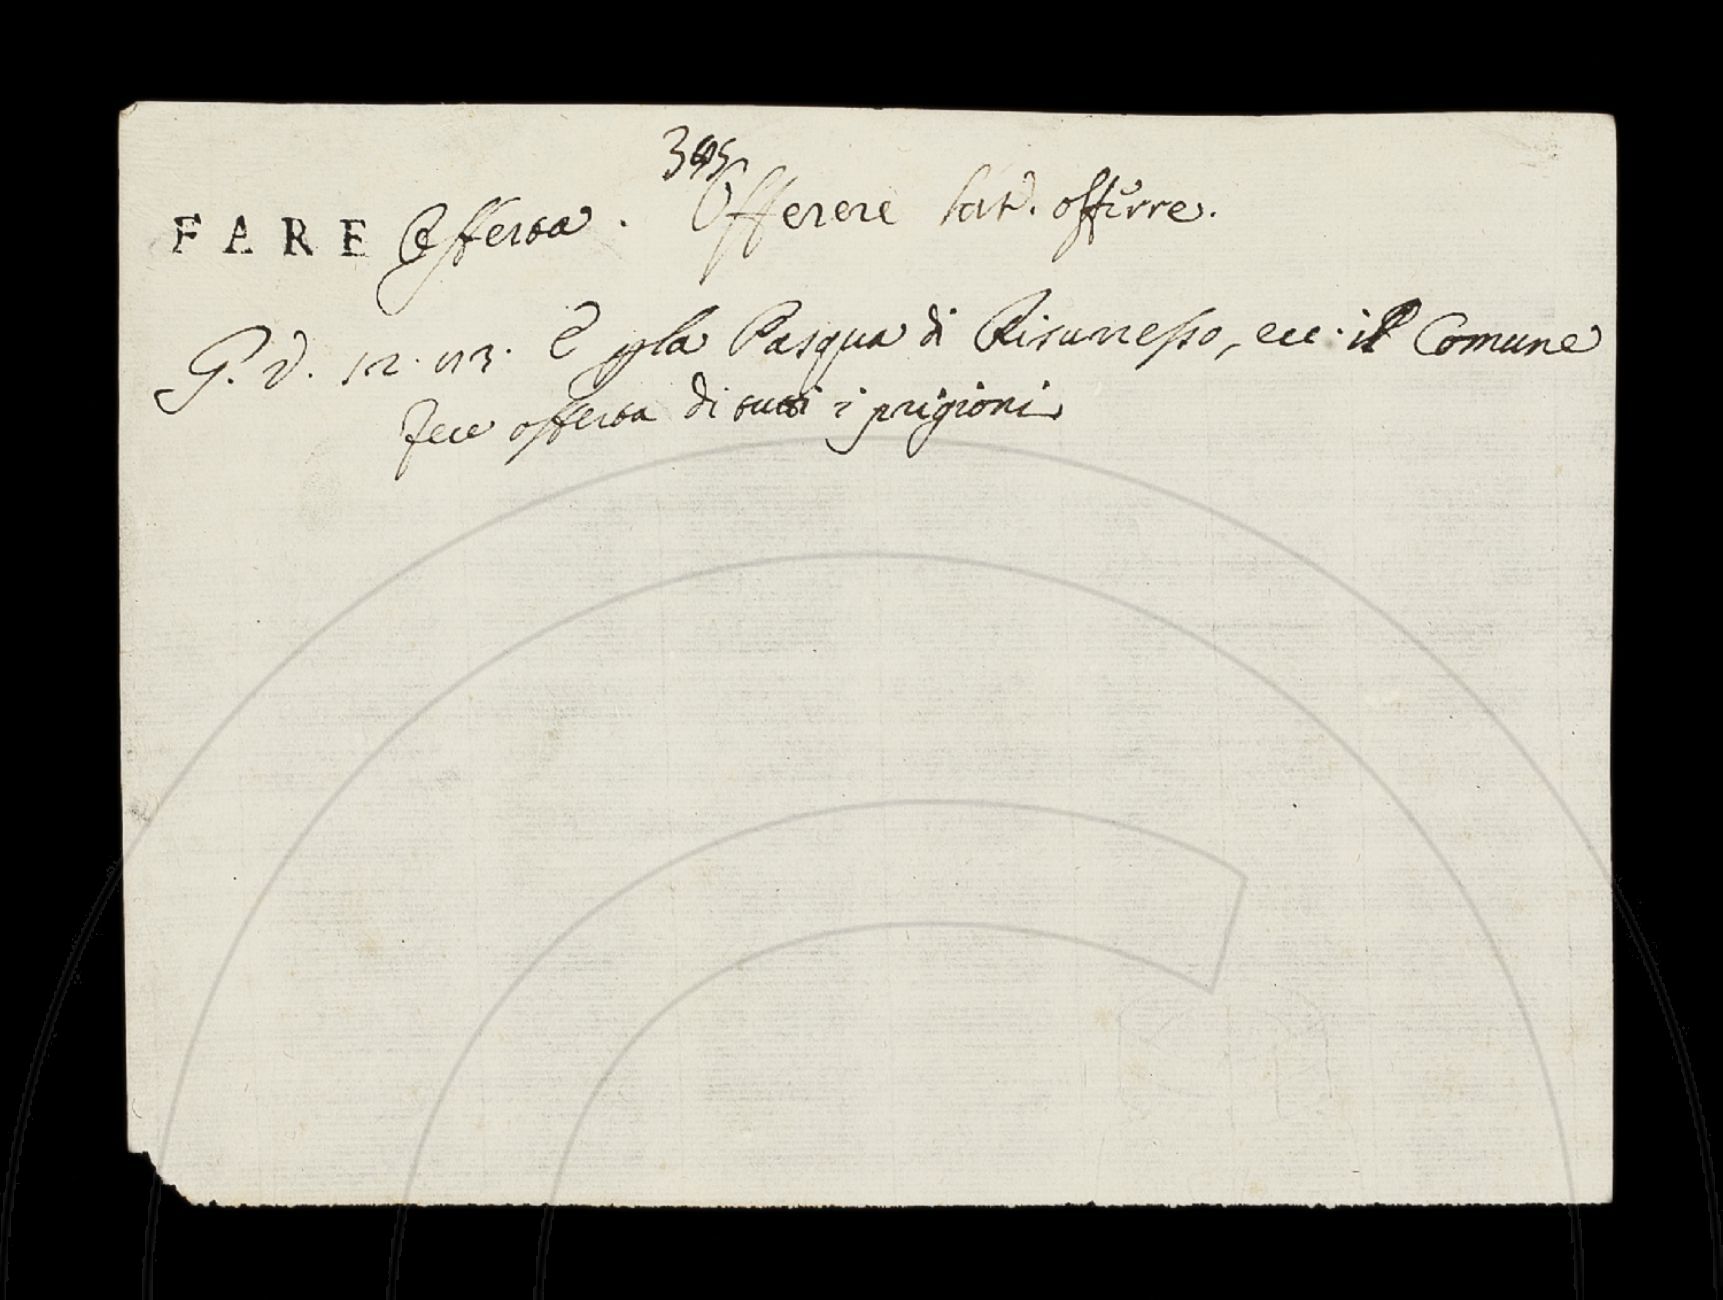 395
FARE Offerta. Offerere lat. offirre.
G. V. 12. 113. E p la Pasqua di Risurresso, ecc. il Comune
fece offerta di tutti i prigioni